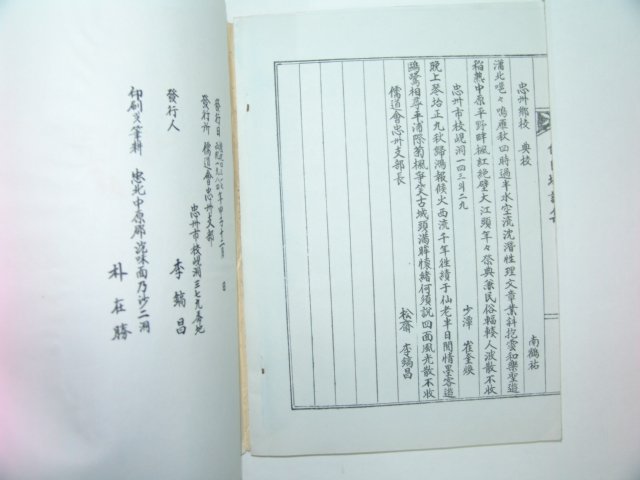 忠州鄕校 典校 南鶴祐
蒲北嗈々鳴雁秋四時過半水空流沈潛性理文章業料花黃和樂聖遊
稻熟中原平野畔楓紅絶壁大江頭年々祭典兼民俗輻輳人波散不收
忠州市校峴洞一四三의二九 少澤 崔奎煥
晩上琴坮正九秋歸鴻報候火西流千年往蹟于仙老半日閒情墨客遊
鷗鷺相尋平浦際菊楓爭笑古城頭滿眸懷緖何須說四面風光散不收
儒道會忠州支部長 松齋 李鎬昌
發行日 年甲子十二月 日
發行所 儒道會忠州支部
忠州市校峴洞三七九番地
發行人 李鎬昌
印刷及筆耕 忠北中原郡 面乃沙二洞
朴在勝